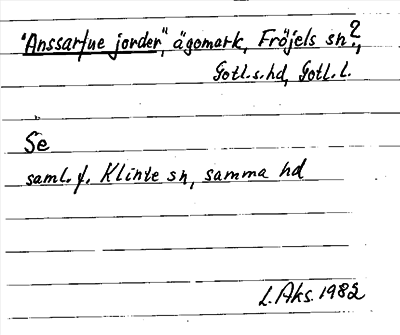 "Anssarfue jorder", ägomark, Fröjels sn?,
Gotl.s.hd, Gotl.l.
Se
saml. f. Klinte sn, samma hd
L.Aks. 1982